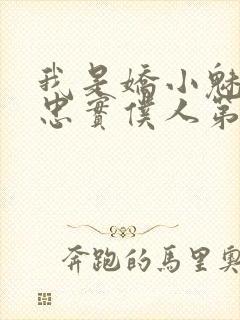 我是嬌小魅
忠實僕人第
奔跑的馬里奧